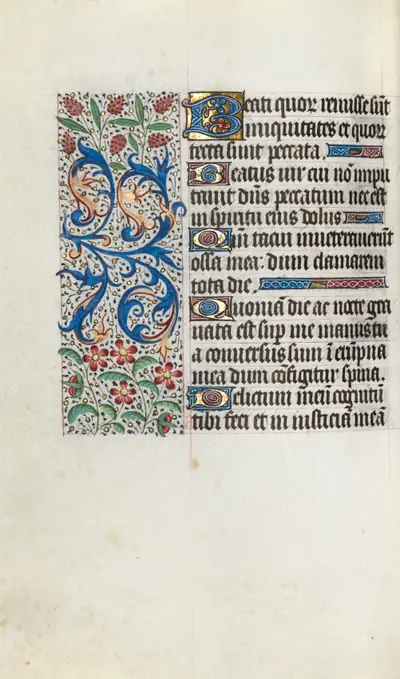 Beati quoꝝ remisse sūt
iniquitates et quoꝝ
tecta sunt peccata.
Beatus vir cui nō impu
tauit dn̄s peccatum nec est
in spiritu eius dolus
Qm̄ tacui inueterauerūt
ossa mea: dum clamarem
tota die.
Quoniā die ac nocte gra
uata est sup me manus tu
a conuersus sum ī erūpna
mea dum cōfigitur spina.
Delictum meū cognitū
tibi feci et in iusticiā meā